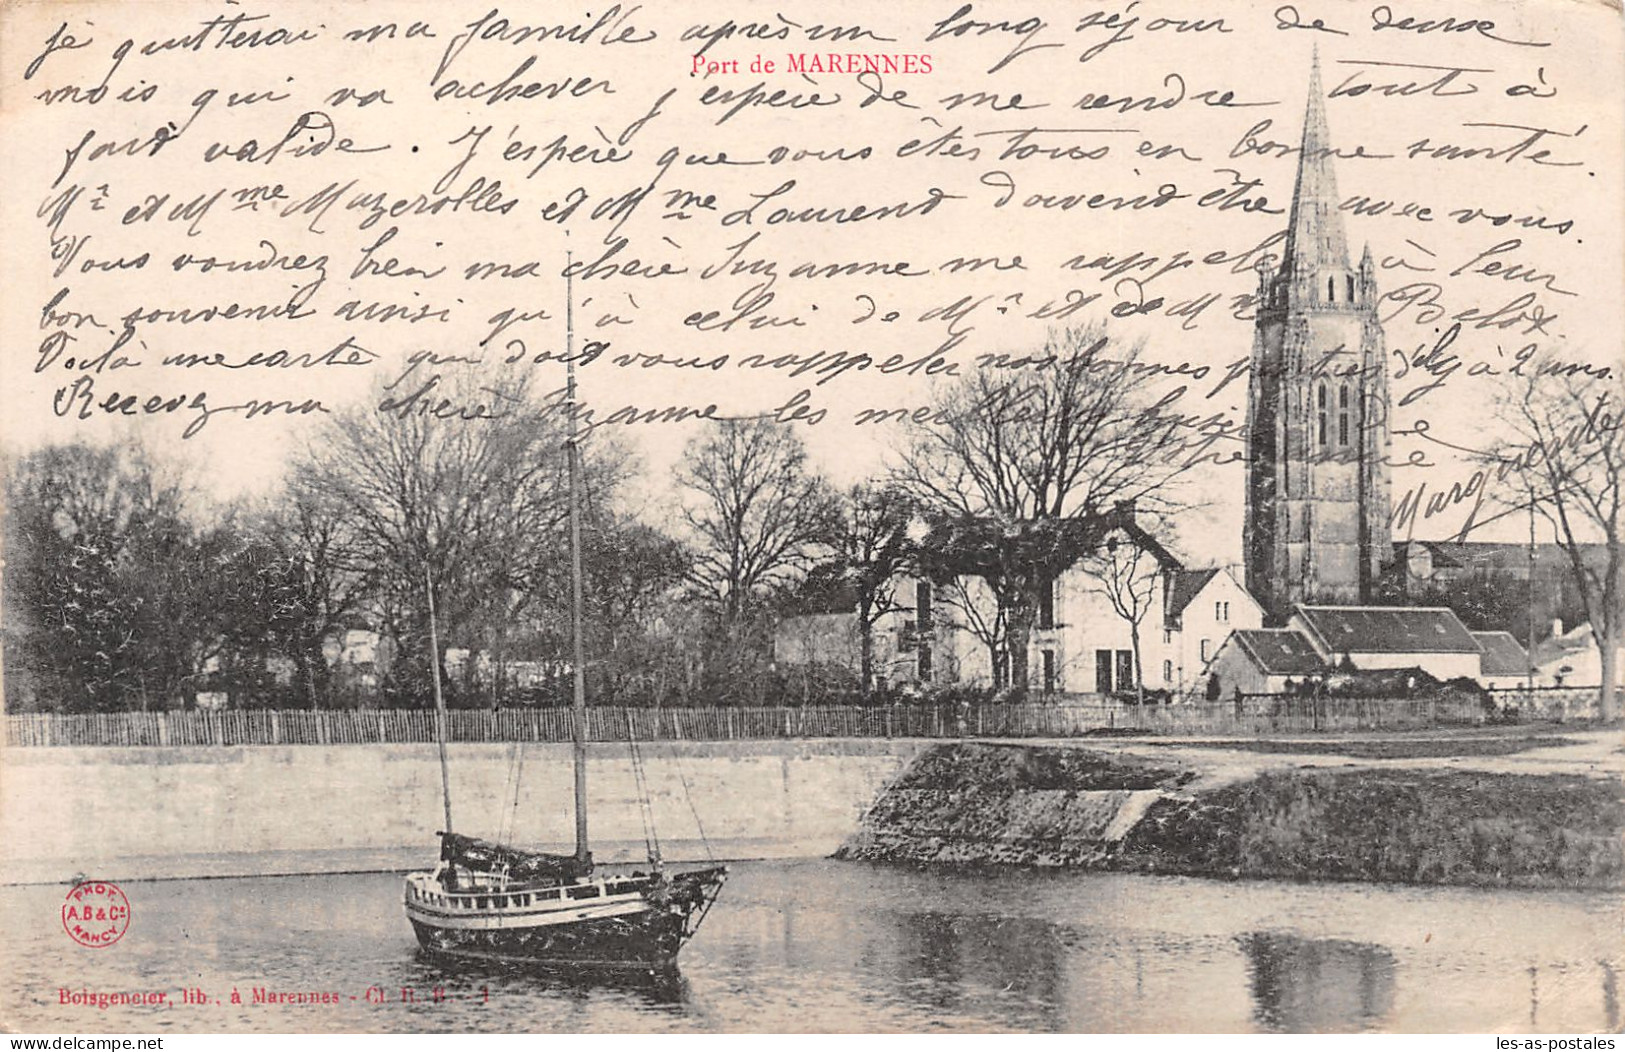 je quitterai ma famille après un long séjour de deux
Port de MARENNES
mois qui va achever j'espère de me rendre tout à
fait valide. J'espère que vous êtes tous en bonne santé.
Mr et Mme Mazerolles et Mme Laurent doivent être avec vous.
Vous voudrez bien ma chère Suzanne me rappeler à leur
bon souvenir ainsi qu'à celui de Mr et de Mme Belot.
Voilà une carte qui doit vous rappeler nos bonnes parties d'il y a 2 ans.
Recevez ma chère Suzanne les meilleurs baisers de
Marguerite
PHOT.
A.B & Cie
NANCY
Boisgencier, lib., à Marennes - Cl. B. R.
les-as-postales